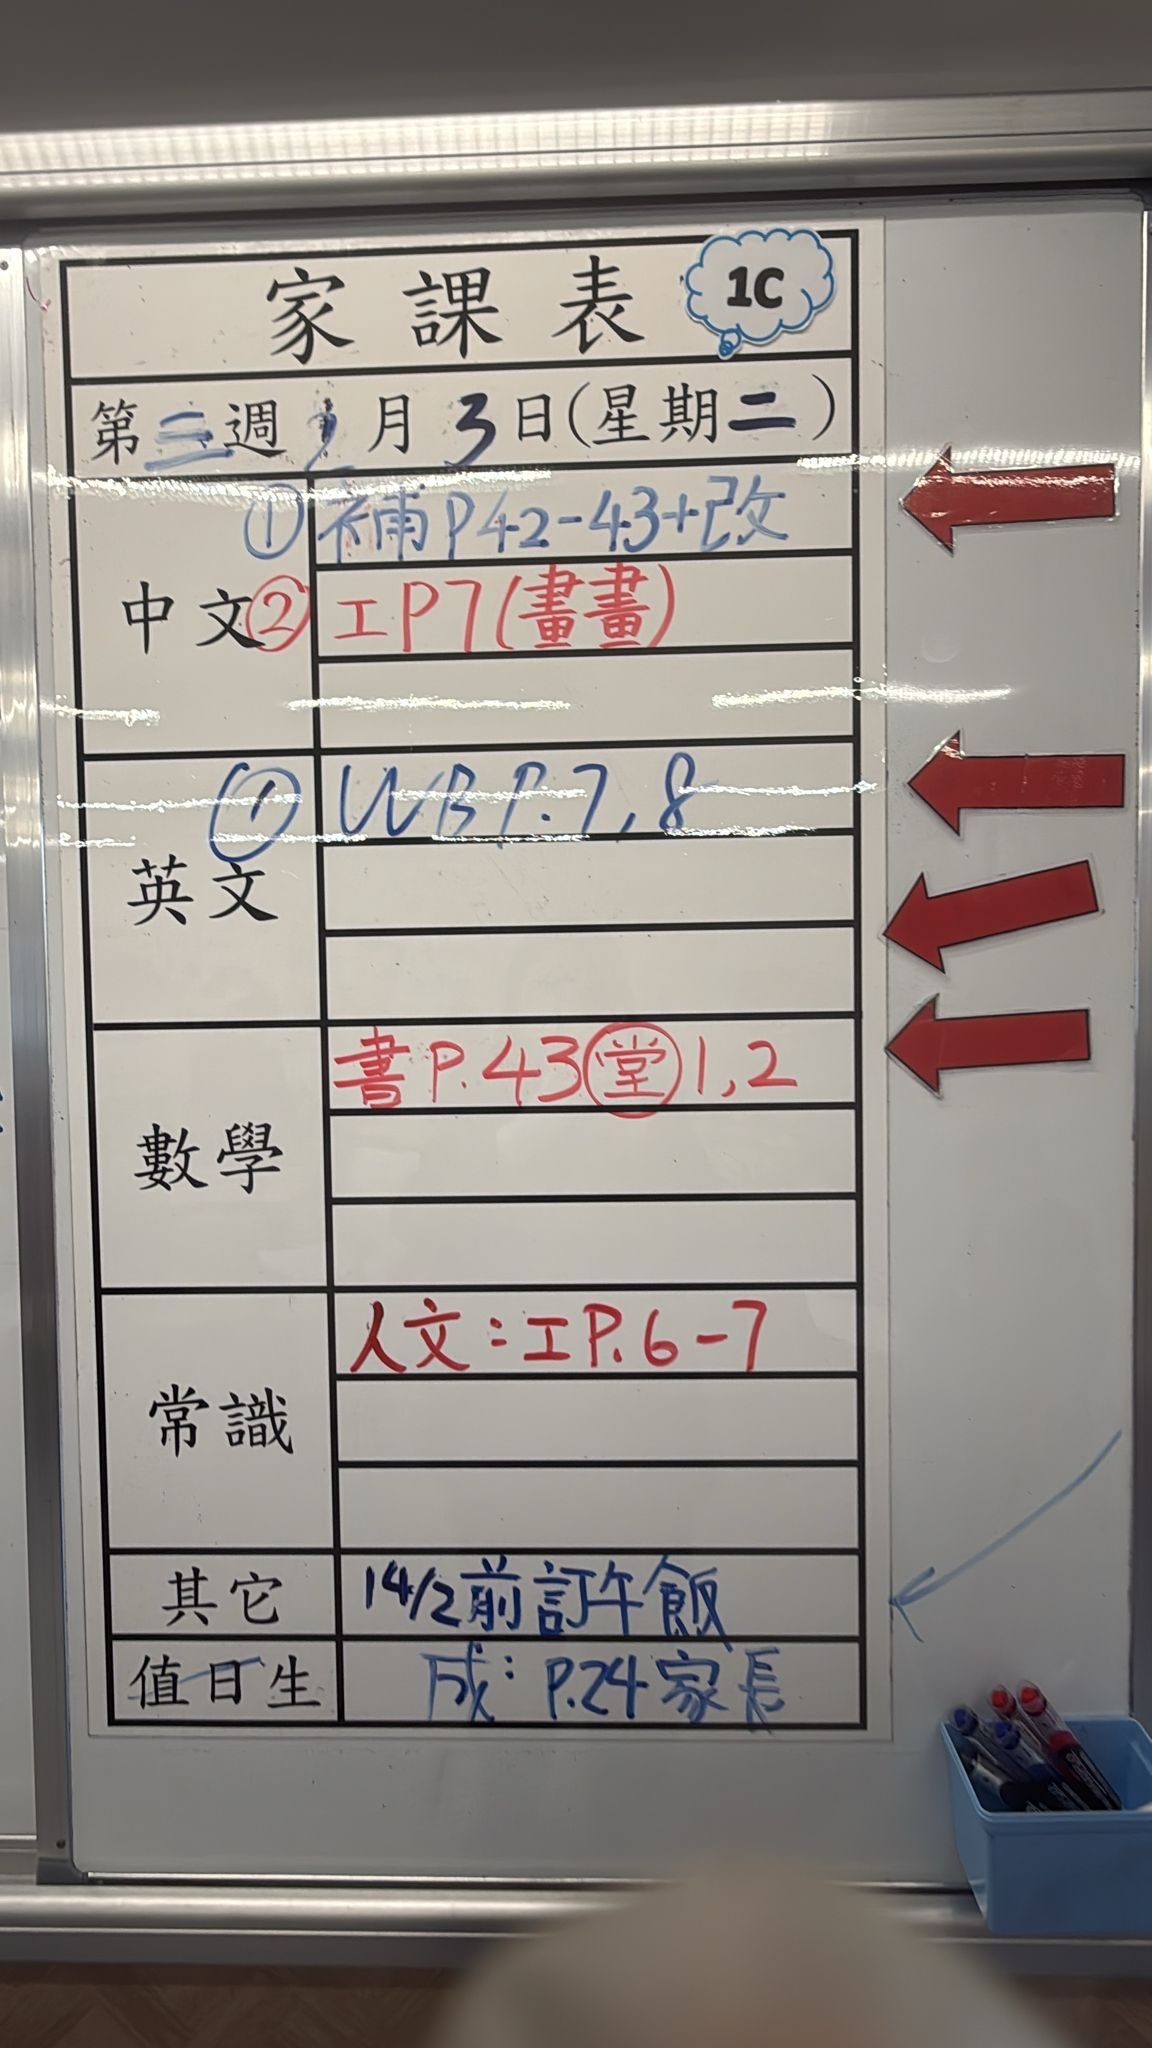 家課表 1C
第三週2月3日(星期二)
中文
①補P42-43+改
②工P7(畫畫)
英文
① WB P.7,8
數學
書P.43堂1,2
常識
人文:工P.6-7
其它
14/2前訂午飯
值日生
成:P.24家長